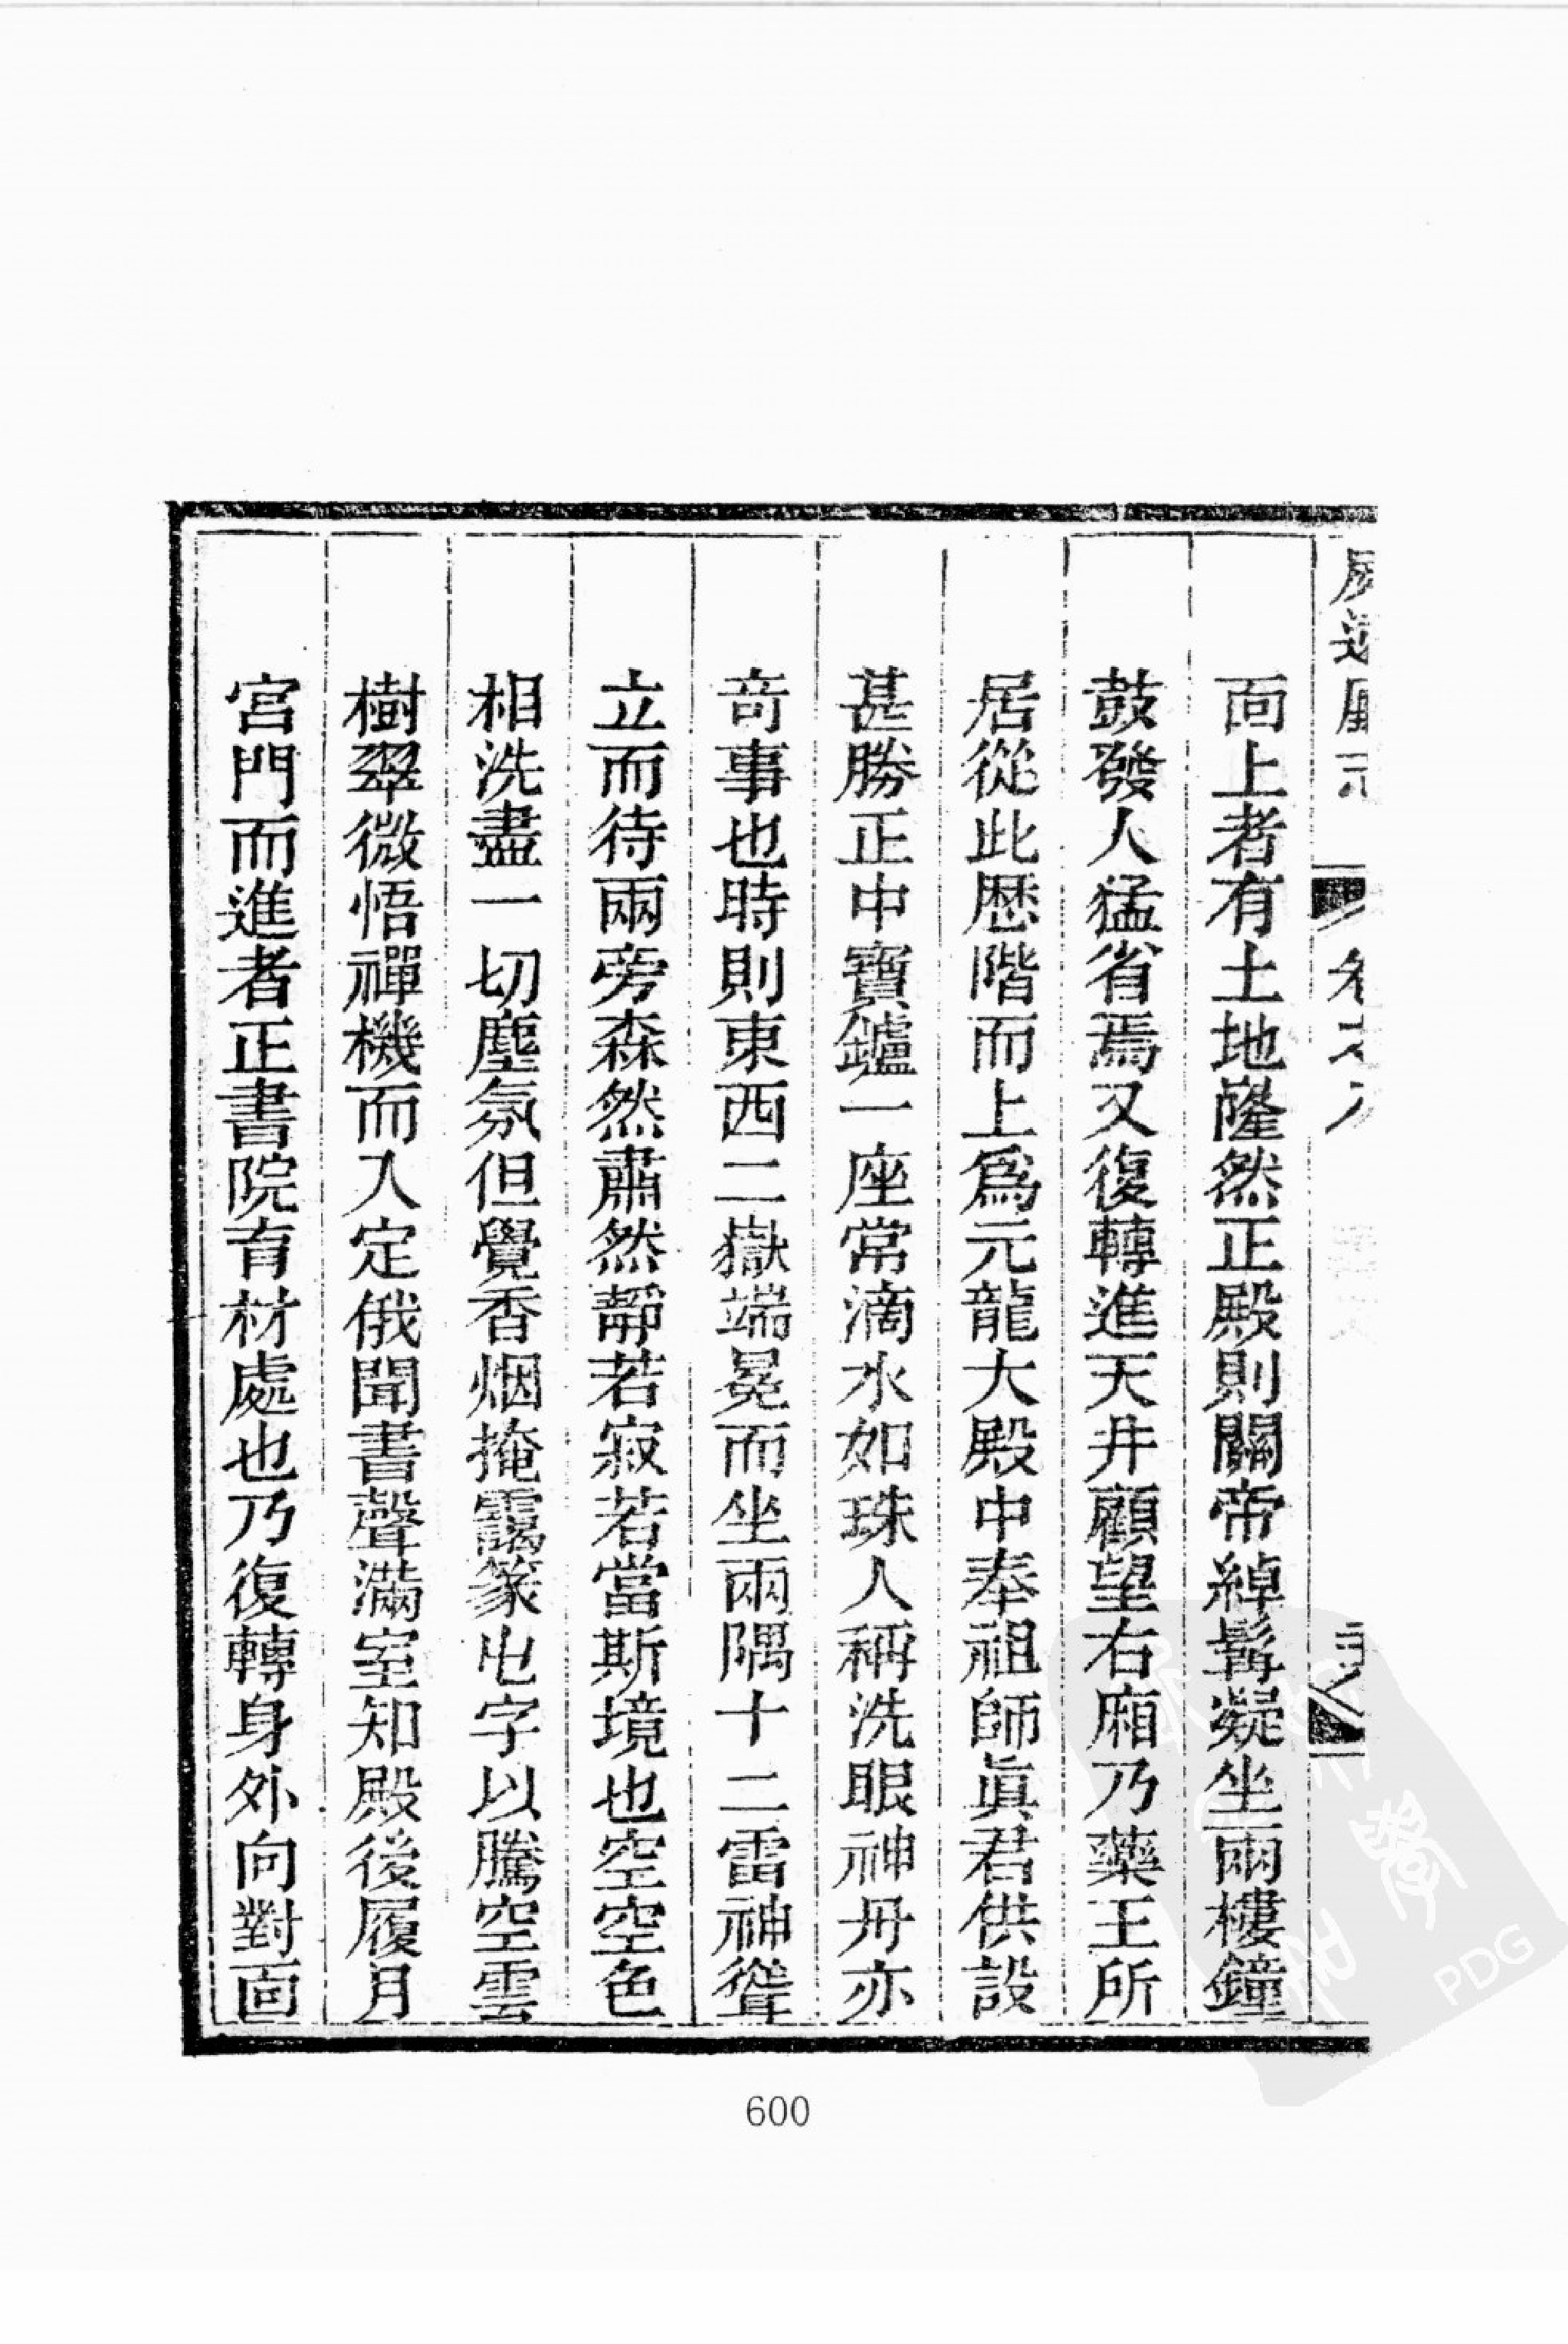 卷之八
面上者有土地隆然正殿則關帝綽髯凝坐兩樓鐘
鼓發人猛省焉又復轉進天井顧望右廂乃藥王所
居從此歷階而上爲元龍大殿中奉祖師眞君供設
甚勝正中寶鑪一座常滴水如珠人稱洗眼神丹亦
奇事也時則東西二嶽端冕而坐兩隅十二雷神聳
立而待兩旁森然肅然靜若寂若當斯境也空空色
相洗盡一切塵氛但覺香烟掩靄篆电字以騰空雲
樹翠微悟禪機而入定俄聞書聲滿室知殿後履月
宮門而進者正書院育材處也乃復轉身外向對面
600
PDG